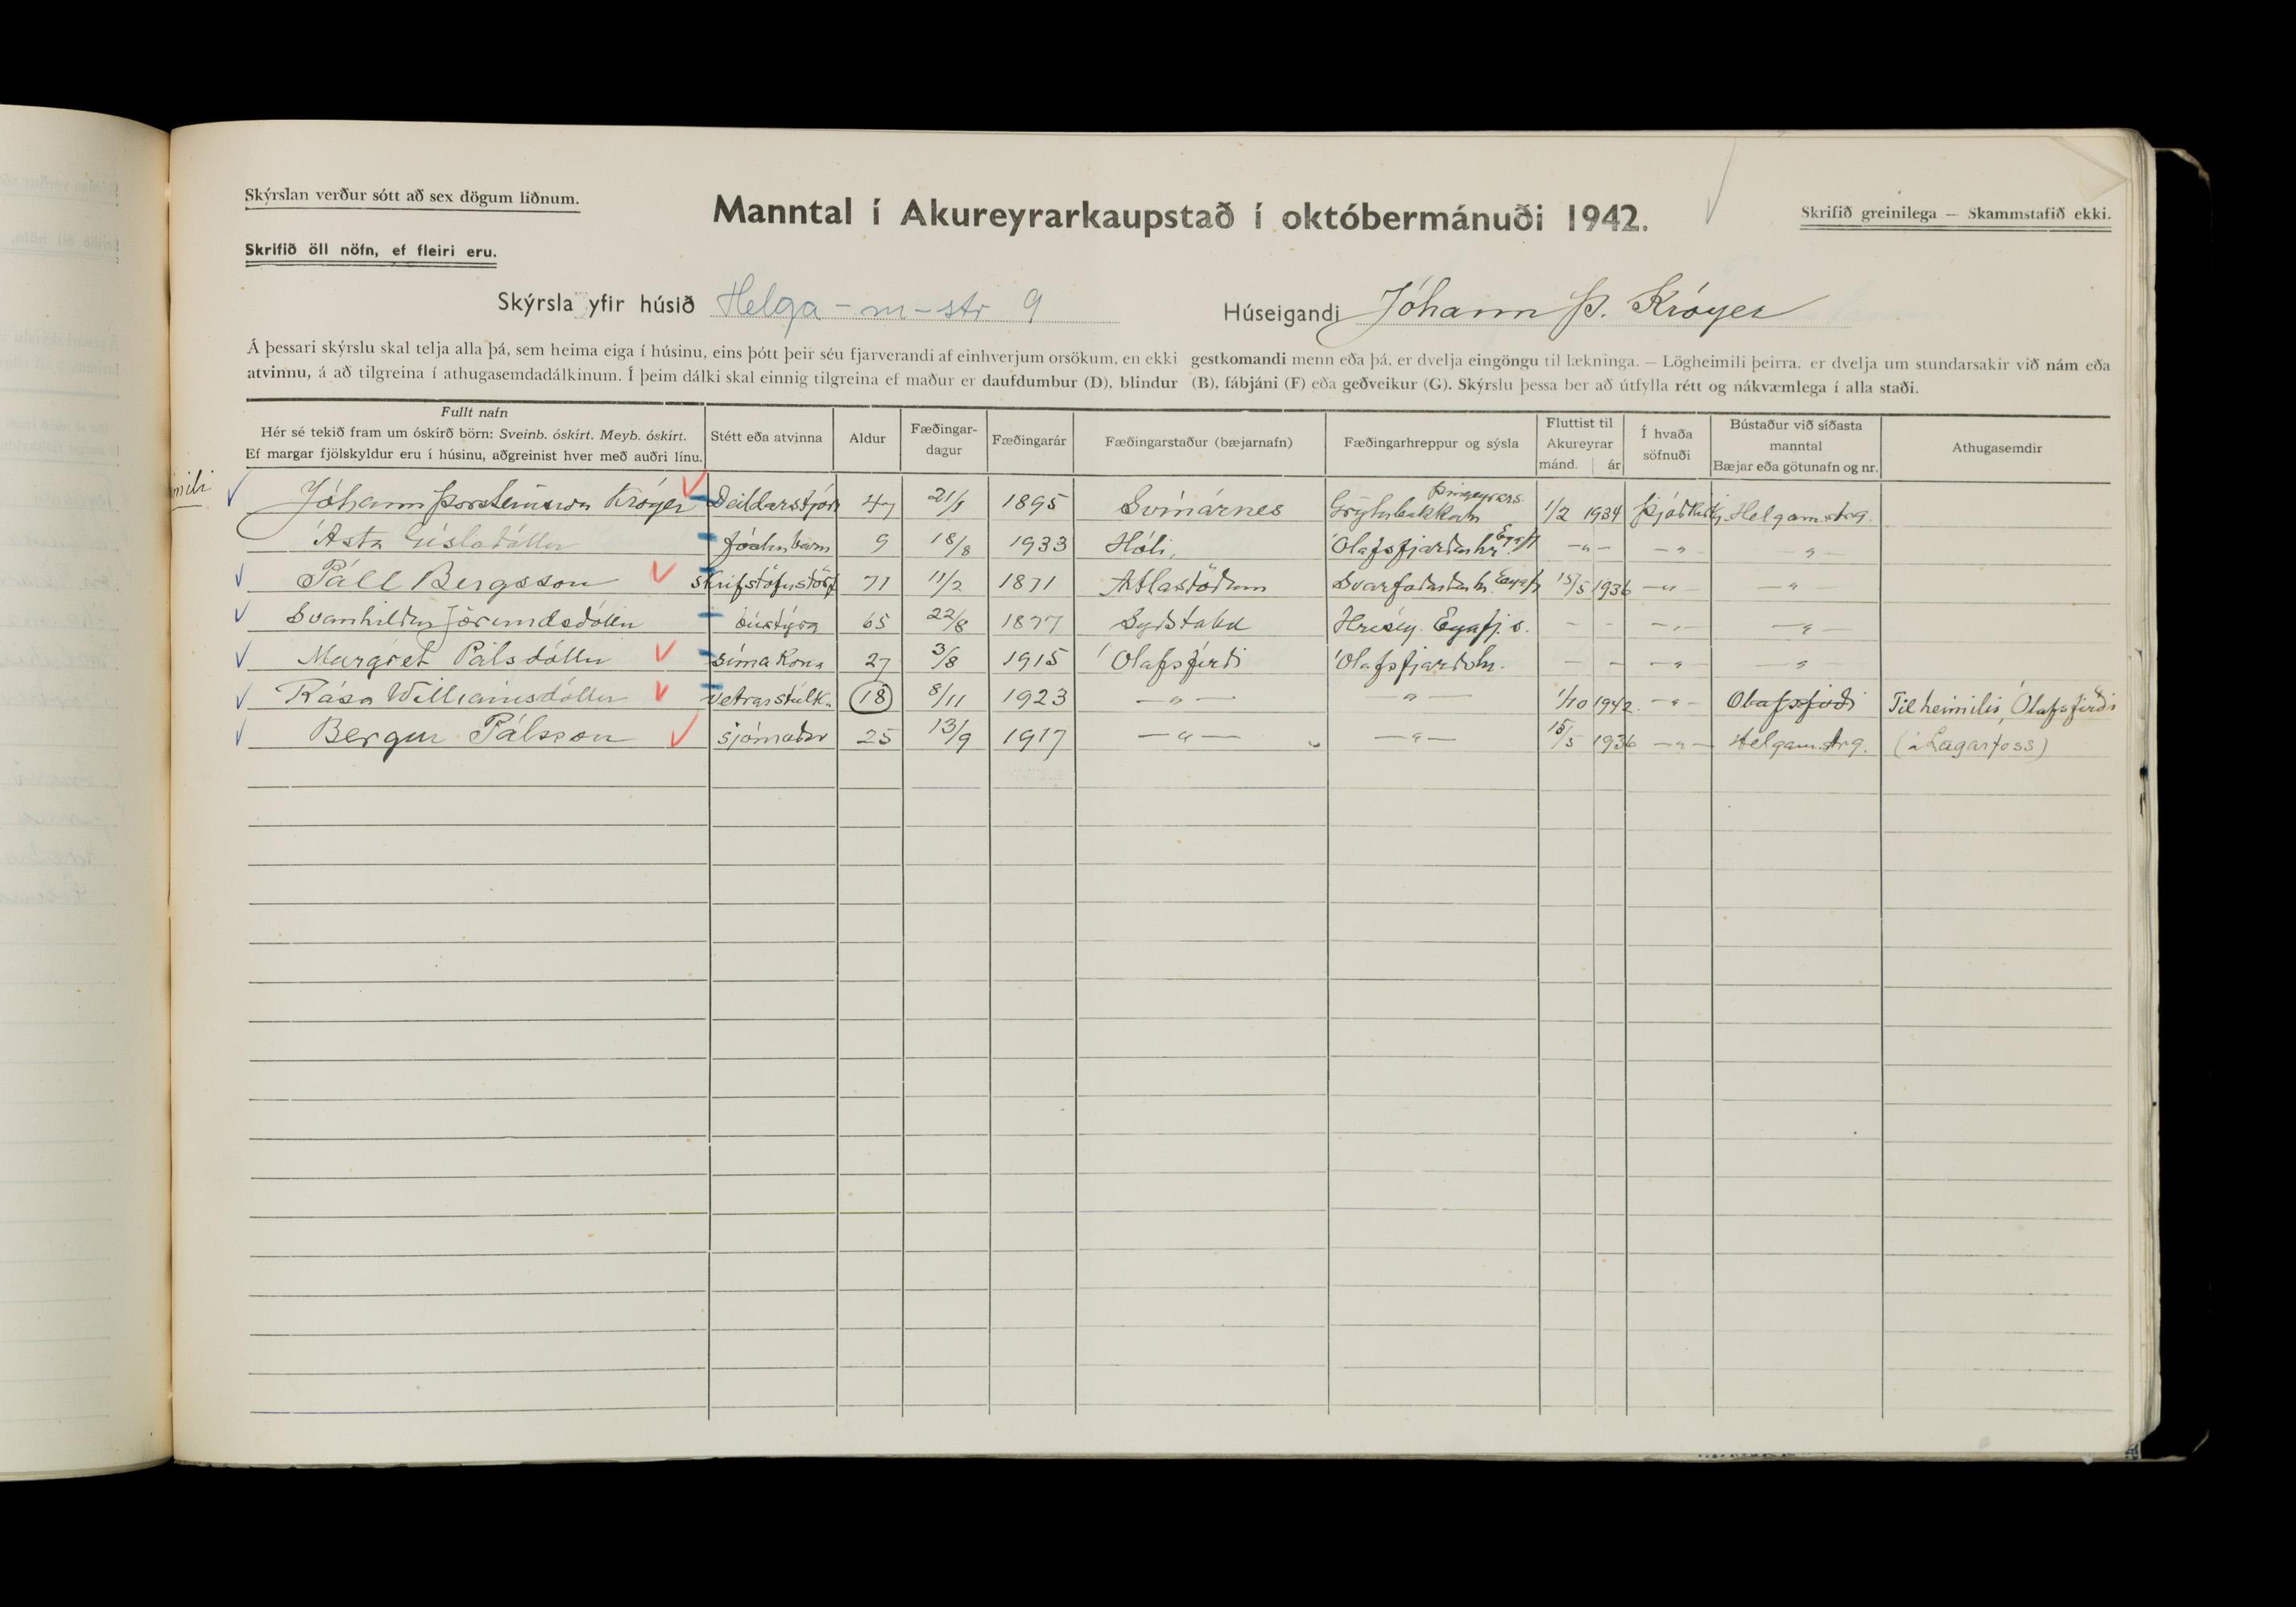 Skýrslan verður sótt að sex dögum liðnum.
Manntal í Akureyrarkaupstað í októbermánuði 1942.
Skrifið greinilega — Skammstafið ekki.
Skrifið öll nöfn, ef fleiri eru.
Skýrsla yfir húsið Helga-m-str 9
Húseigandi Jóhann Þ. Kröyer
Á þessari skýrslu skal telja alla þá, sem heima eiga í húsinu, eins þótt þeir séu fjarverandi af einhverjum orsökum, en ekki gestkomandi menn eða þá, er dvelja eingöngu til lækninga. — Lögheimili þeirra, er dvelja um stundarsakir við nám eða
atvinnu, á að tilgreina í athugasemdadálkinum. Í þeim dálki skal einnig tilgreina ef maður er daufdumbur (D), blindur (B), fábjáni (F) eða geðveikur (G). Skýrslu þessa ber að útfylla rétt og nákvæmlega í alla staði.
Fullt nafn
Hér sé tekið fram um óskírð börn: Sveinb. óskírt. Meyb. óskírt.
Ef margar fjölskyldur eru í húsinu, aðgreinist hver með auðri línu.
Stétt eða atvinna
Aldur
Fæðingar-
dagur
Fæðingarár
Fæðingarstaður (bæjarnafn)
Fæðingarhreppur og sýsla
Fluttist til
Akureyrar
mánd. ár
Í hvaða
söfnuði
Bústaður við síðasta
manntal
Bæjar eða götunafn og nr.
Athugasemdir
Jóhann Þorsteinsson Kröyer Deildarstjóri 47 21/1 1895 Svínárnes Grýtubakkahr Þingeyjars. 1/2 1934 Þjóðkirkj. Helgam.str 9
Ásta Gísladóttir fósturbarn 9 18/8 1933 Hóli, Ólafsfjarðarhr Eyafj —〃— —〃— —〃—
Páll Bergsson skrifstofustörf 71 11/2 1871 Atlastöðum Svarfaðardalshr. Eyafj 15/5 1936 —〃— —〃—
Svanhildur Jörundsdóttir bústýra 65 22/8 1877 Syðstabæ Hrísey. Eyafj. s. — — —〃— —〃—
Margrét Pálsdóttir símakona 27 3/8 1915 Ólafsfirði Ólafsfjarðarhr. — — —〃— —〃—
Rósa Williamsdóttir Vetrarstúlk. 18 8/11 1923 —〃— —〃— 1/10 1942 —〃— Ólafsfirði Til heimilis, Ólafsfirði
Bergur Pálsson sjómaður 25 13/9 1917 —〃— —〃— 15/5 1936 —〃— Helgam.str 9. (á Lagarfoss)